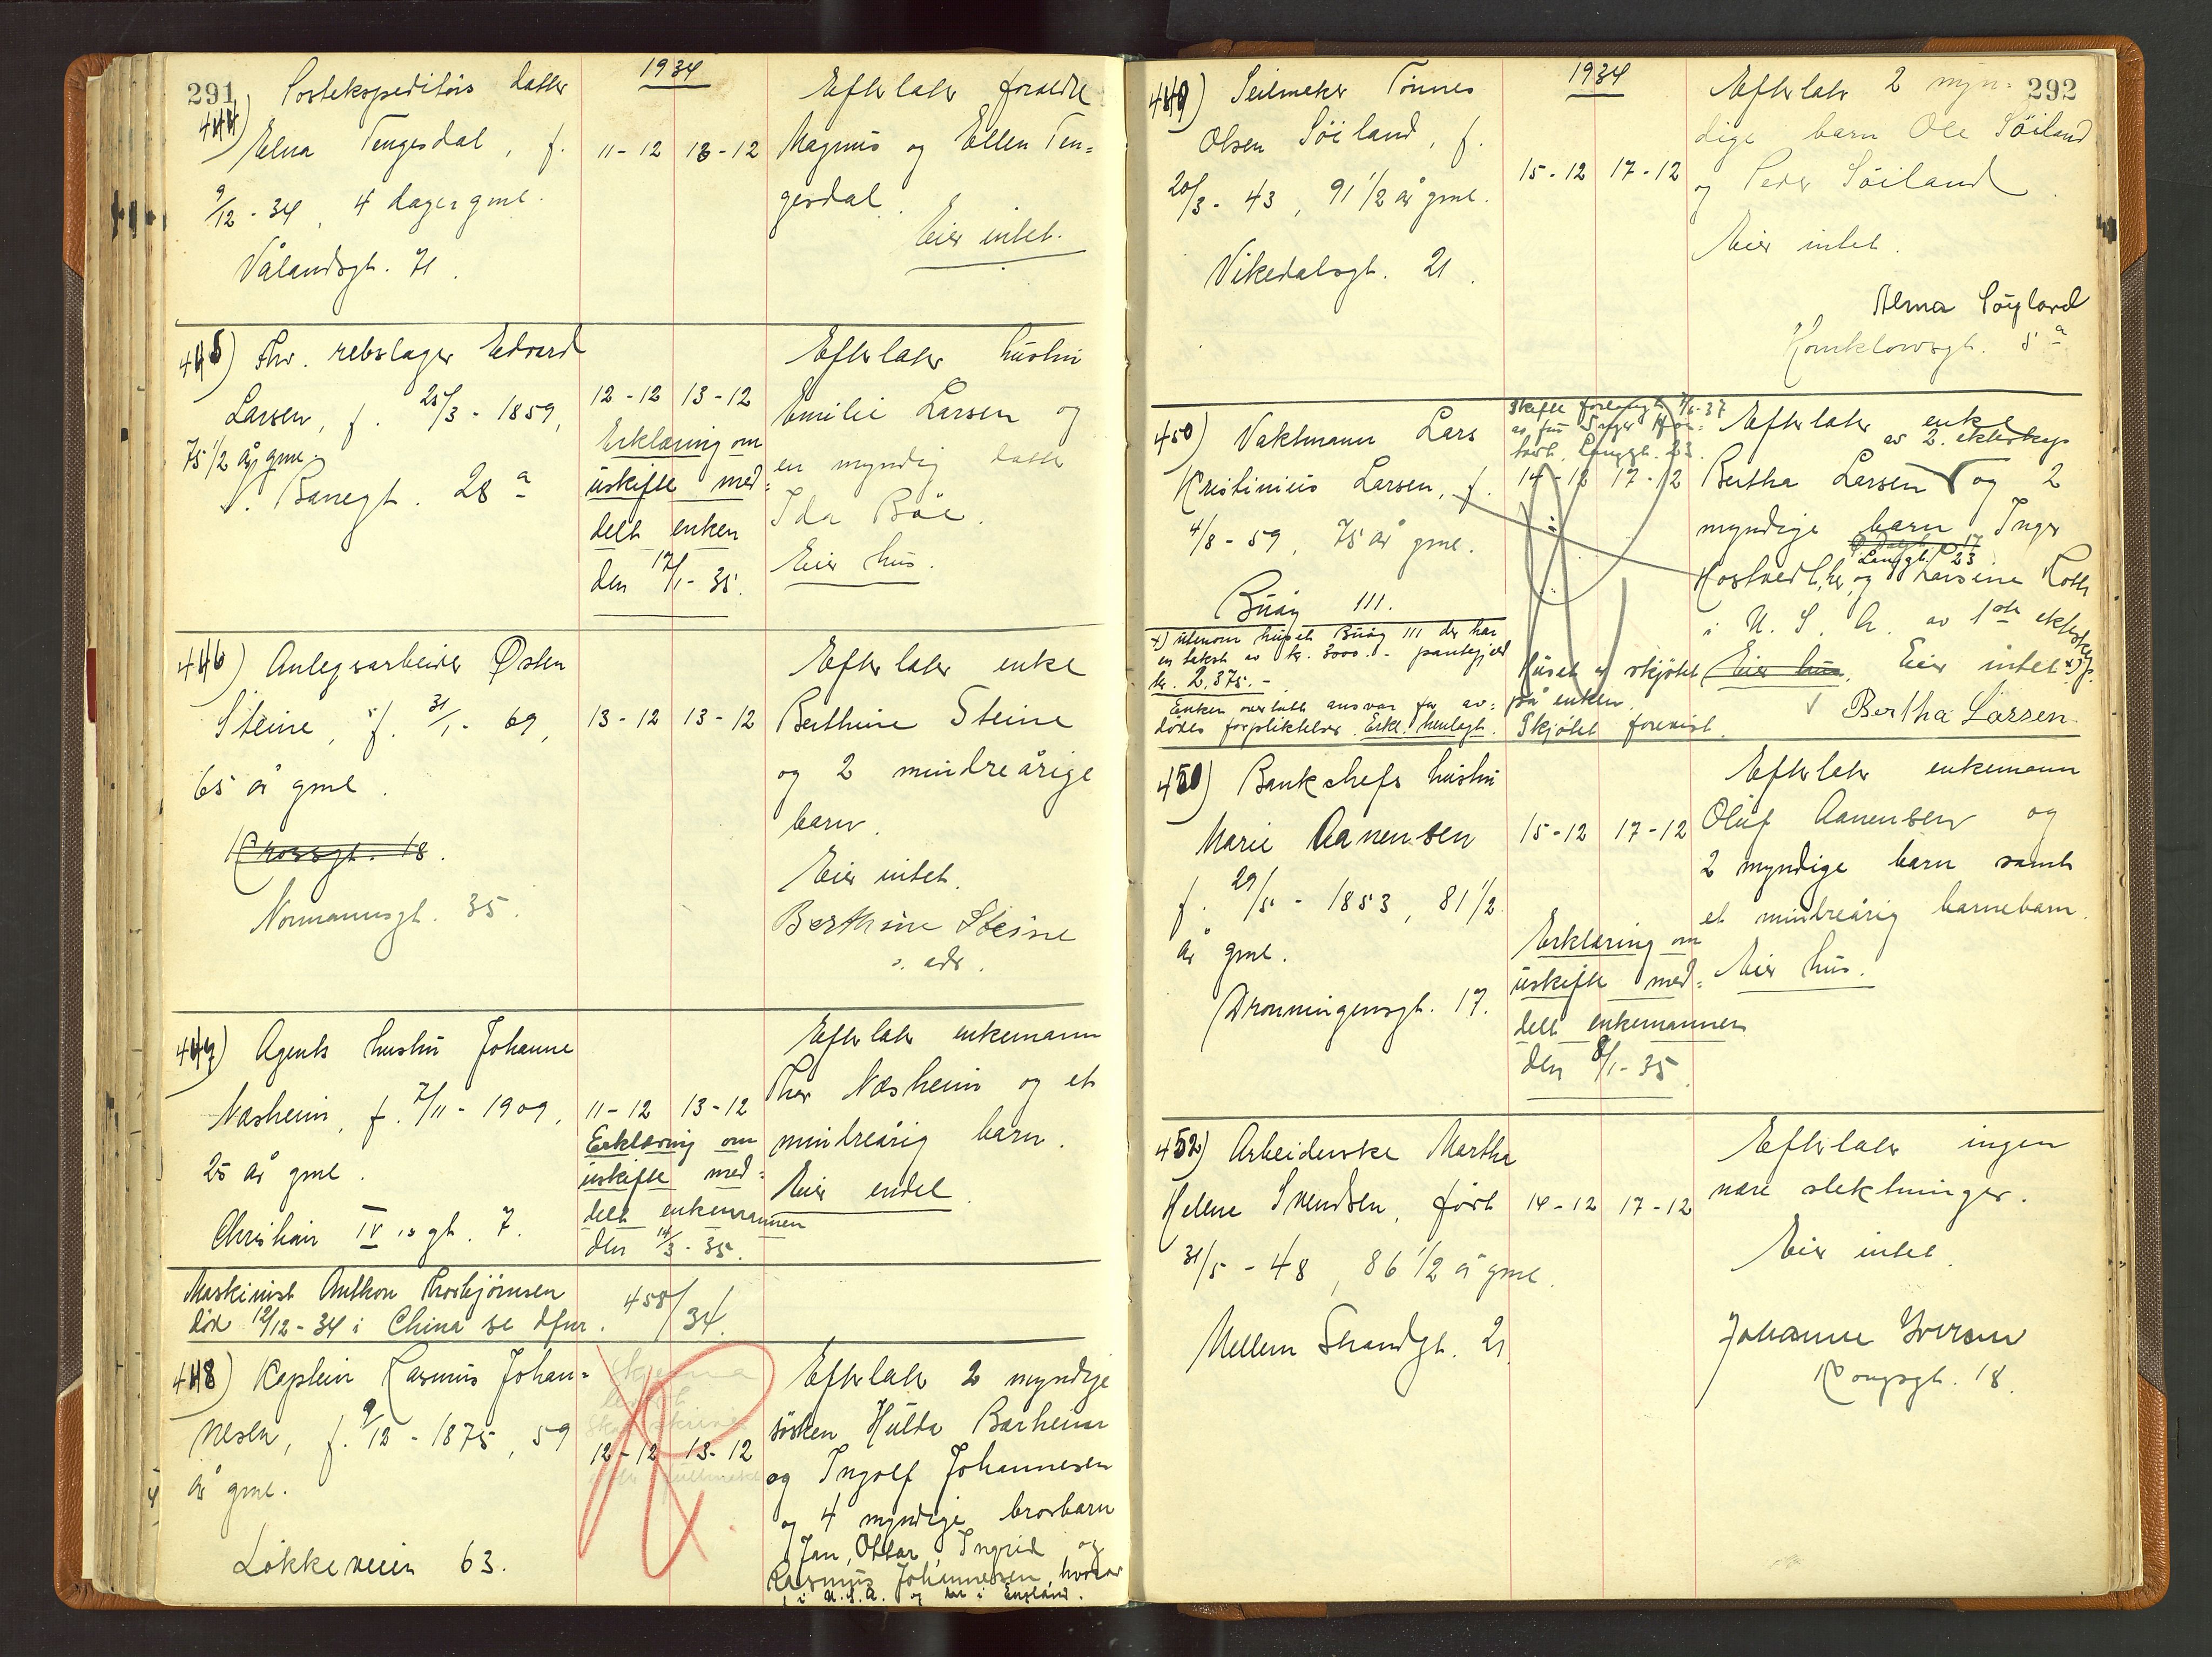 291
1934
444) Postekspeditørs datter
Elna Tengesdal, f.
9/12 - 34, 4 dager gml.
Vålandsgt. 71.
11-12 13-12
Efterlater foreldre
Magnus og Ellen Ten=
gesdal.
Eier intet.
445) Fhv. rebslager Edvard
Larsen, f. 25/3 - 1859,
75 1/2 år gml.
Banegt. 28 a
12-12 13-12
Erklæring om
uskifte med=
delt enken
den 17/1 - 35.
Efterlater hustru
Emilie Larsen og
en myndig datter
Ida Bøe.
Eier hus.
446) Anlegsarbeider Østen
Steine, f. 31/1 - 69,
65 år gml.
Krossgt. 18.
Normannsgt. 35.
13-12 13-12
Efterlater enke
Berthine Steine
og 2 mindreårige
barn.
Eier intet.
Berthine Steine
s. adr.
447) Agents hustru Johanne
Næsheim, f. 7/11 - 1909,
25 år gml.
Christian IV's gt. 7.
11-12 13-12
Erklæring om
uskifte med=
delt enkemannen
den 14/3 - 35.
Efterlater enkemann
Thor Næsheim og et
mindreårig barn.
Eier endel.
Maskinist Anthon Thorbjørnsen
død 12/12 - 34 i China se dfnr. 458/34.
448) Kaptein Rasmus Johan=
nesen, f. 9/12 - 1875, 59
år gml.
Løkkeveien 63.
12-12 13-12
Efterlater 2 myndige
søsken Hulda Barheim
og Ingolf Johannesen
og 4 myndige brorbarn
Jan, Ottar, Ingrid og
Rasmus Johannessen, hvorav
1 i U.S.A. og en i England.
292
1934
449) Seilmaker Tønnes
Olsen Søiland, f.
20/3 - 43, 91 1/2 år gml.
Vikedalsgt. 21.
15-12 17-12
Efterlater 2 myn=
dige barn Ole Söiland
og Peder Söiland
Eier intet.
Alma Söyland
Homklowsgt. 5 a
450) Vaktmann Lars
Kristinius Larsen, f.
4/8 - 59, 75 år gml.
Buøy 111.
x) utenom huset Buøy 111 der har
en takst av kr. 3000.- pantegjeld
kr. 2,375.-
Enken overtatt ansvar for av=
dødes forpliktelser. Erkl. henlagt.
Skifte forlangt
av fru Inger Hos=
Langgt. 23.
14-12 17-12
Huset er skjøtet
på enken.
Skjøtet forevist.
Efterlater enke
av 2. ekteskap
Bertha Larsen og 2
myndige barn Inger
Langgt. 23
Hostvedt, her, og Larsine Roth
i U. S. A. av 1ste ekteskap.
Eier hus. Eier intet x)
Bertha Larsen
451) Bankchefs hustru
Marie Aanensen
f. 29/5 - 1853, 81 1/2
år gml.
Dronningensgt. 17.
15-12 17-12
Erklæring om
uskifte med=
delt enkemannen
den 8/1 - 35.
Efterlater enkemann
Oluf Aanensen og
2 myndige barn samt
et mindreårig barnebarn.
Eier hus.
452) Arbeiderske Marthe
Helene Svendsen, født
31/5 - 48, 86 1/2 år gml.
Mellem Strandgt. 21.
14-12 17-12
Efterlater ingen
nære slektninger.
Eier intet.
Johanne Iversen
Kongsgt. 18.